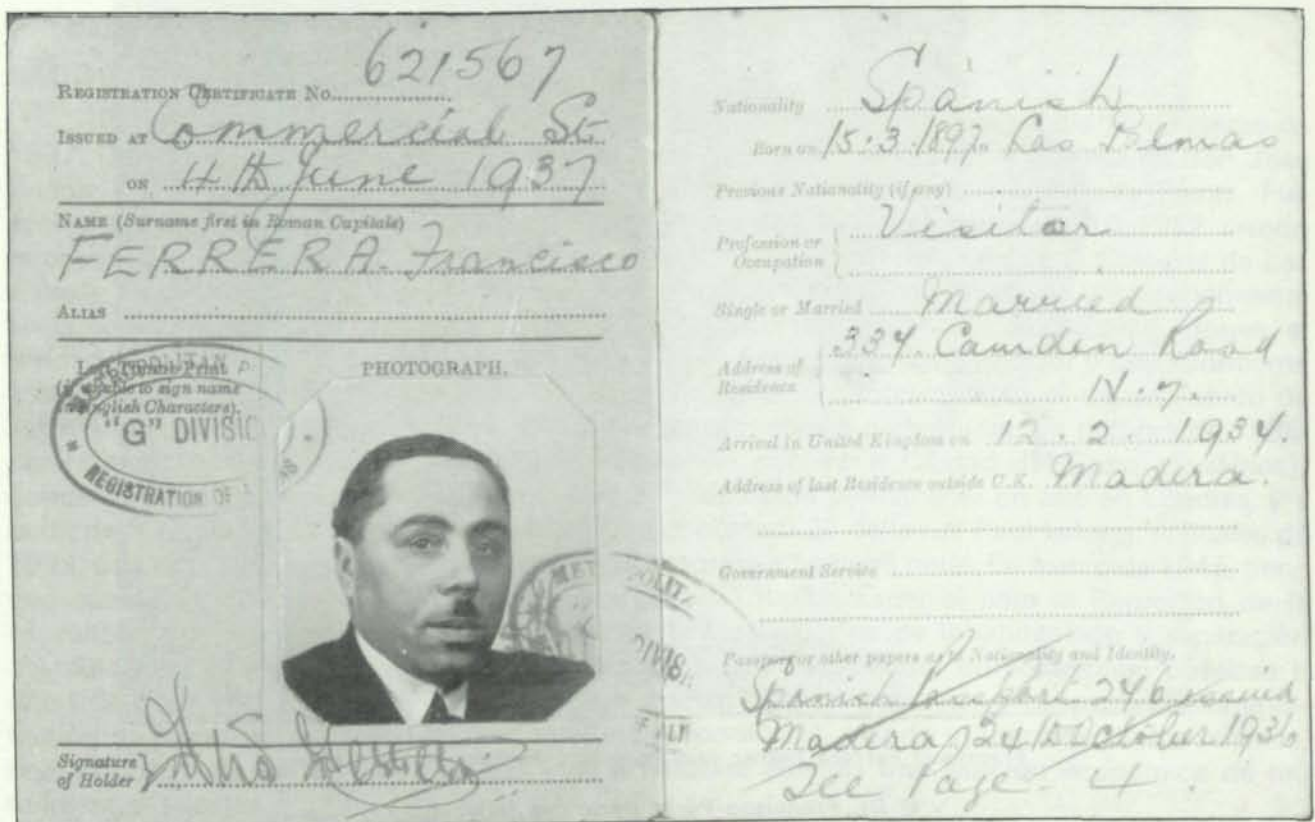 REGISTRATION CERTIFICATE No. 621567
ISSUED AT Commercial St
ON 4th June 1937
NAME (Surname first in Roman Capitals)
FERRERA. Francisco
ALIAS
Left Thumb Print
(if unable to sign name
in English Characters).
METROPOLITAN
"G" DIVISIO
REGISTRATION OF
PHOTOGRAPH.
METROPOLITA
Signature
of Holder
Nationality Spanish
Born on 15.3.1897 in Las Plemas
Previous Nationality (if any)
Profession or
Occupation Visitor
Single or Married Married
Address of
Residence 334. Camden Road
N.7.
Arrival in United Kingdom on 12.2.1937.
Address of last Residence outside U.K. Madera.
Government Service
Passport or other papers as to Nationality and Identity.
Spanish Passport 246 issued
Madera 24th October 1936
See Page 4.